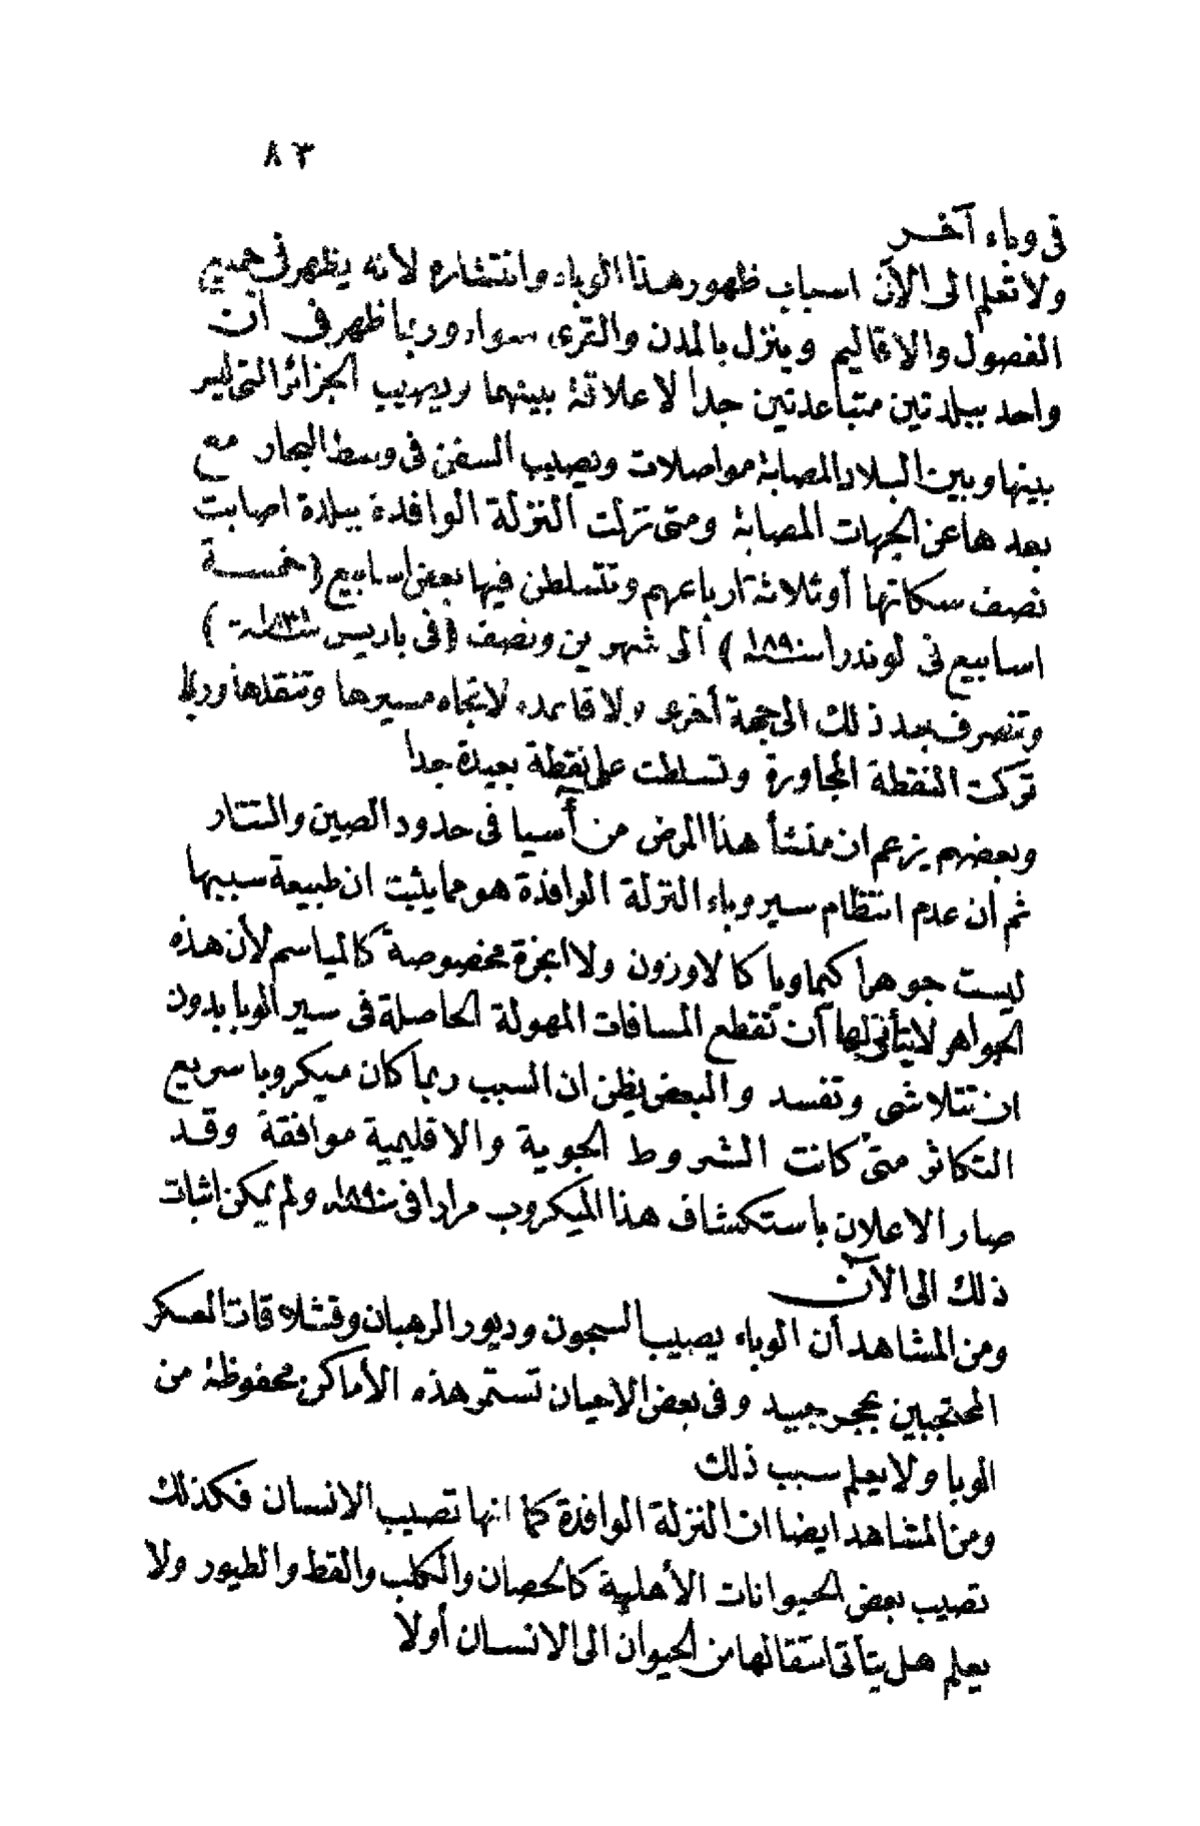 ٨٣
فى وباء آخر
ولا تعلم الى الآن اسباب ظهور هذا الوباء وانتشاره لأنه يظهر فى جميع
الفصول والاقاليم وينزل بالمدن والقرى سواء وربما ظهر فى آن
واحد ببلدتين متباعدتين جداً لا علاقة بينهما ويصيب الجزائر التى ليس
بينها وبين البلاد المصابة مواصلات ويصيب السفن فى وسط البحار مع
بعدها عن الجهات المصابة ومتى نزلت النزلة الوافدة ببلدة اصابت
نصف سكانها أو ثلاثة أرباعهم وتتسلطن فيها بعض اسابيع (خمسة
اسابيع فى لوندرا سنة ١٨٩٠) الى شهرين ونصف (فى باريس سنة ١٨٣١)
وتنصرف بعد ذلك الى جهة أخرى ولا قاعدة لاتجاه مسيرها وتنقلها وربما
تركت النقطة المجاورة وتسلطت على نقطة بعيدة جدا
وبعضهم يزعم ان منشأ هذا المرض من آسيا فى حدود الصين والتتار
ثم ان عدم انتظام سير وباء النزلة الوافدة هو مما يثبت ان طبيعة سببها
ليست جوهرا كيماويا كالاوزون ولا ابخرة مخصوصة كالمياسم لأن هذه
الجواهر لا يتأتى لها أن تقطع المسافات المهولة الحاصلة فى سير الوبا بدون
ان تتلاشى وتفسد والبعض يظن ان السبب ربما كان ميكروبا سريع
التكاثر متى كانت الشروط الجوية والاقليمية موافقة وقد
صار الاعلان باستكشاف هذا الميكروب مرارا فى سنة ١٨٩٠ ولم يمكن اثبات
ذلك الى الآن
ومن المشاهد أن الوباء يصيب السجون وديور الرهبان وقشلاقات العسكر
المحتجبين بحجر جيد وفى بعض الاحيان تستمر هذه الأماكن محفوظة من
الوبا ولا يعلم سبب ذلك
ومن المشاهد ايضا ان النزلة الوافدة كما انها تصيب الانسان فكذلك
تصيب بعض الحيوانات الأهلية كالحصان والكلب والقط والطيور ولا
يعلم هل يتأتى انتقالها من الحيوان الى الانسان أولا